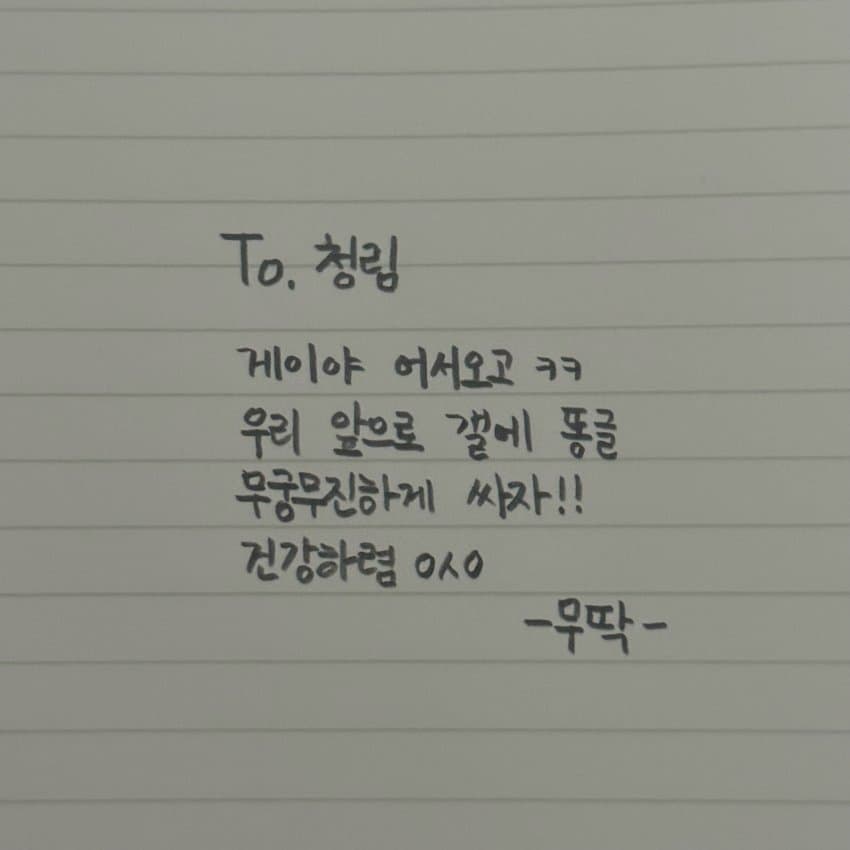 To. 청림
게이야 어서오고 ㅋㅋ
우리 앞으로 갤에 똥글
무궁무진하게 싸자!!
건강하렴 ㅇㅅㅇ
-무딱-